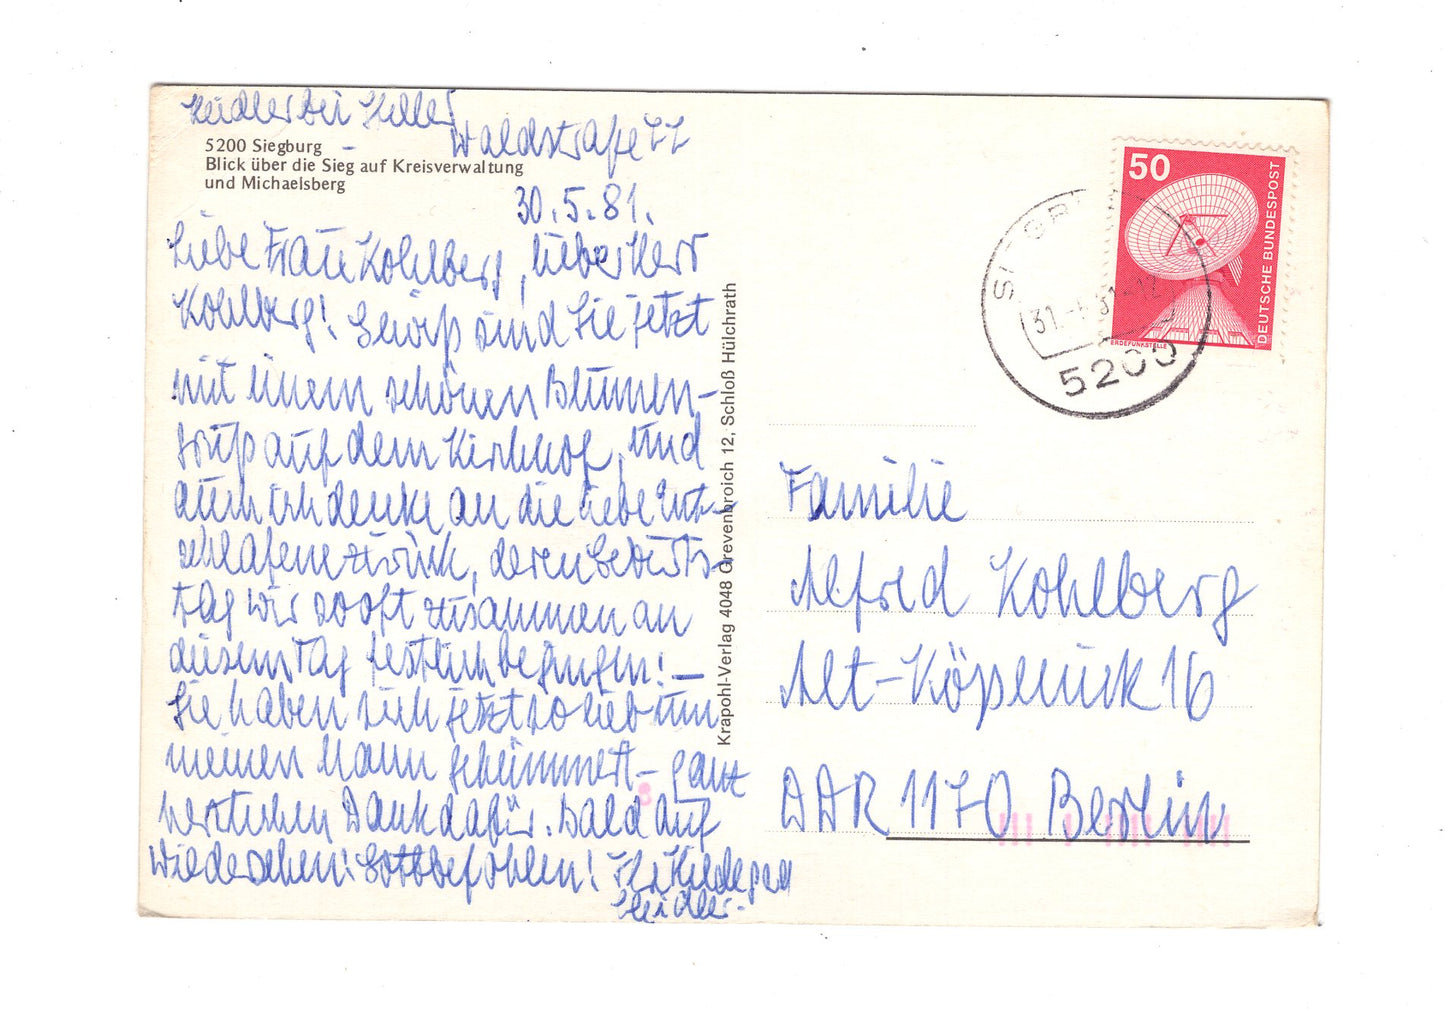 Heidler bei Heller
Waldstraße 22
5200 Siegburg
Blick über die Sieg auf Kreisverwaltung
und Michaelsberg
30.5.81.
Liebe Frau Kohlberg, lieber Herr
Kohlberg! Gewiß sind Sie jetzt
mit einem schönen Blumen-
gruß auf dem Kirchhof, und
auch ich denke an die liebe Ent-
schlafene zurück, deren Geburts-
tag wir so oft zusammen an
diesem Tag festlich begingen! —
Sie haben sich jetzt so lieb um
meinen Mann gekümmert – ganz
herzlichen Dank dafür. Bald auf
Wiedersehen! Gottbefohlen! Ihre Hildegard
Heidler.
Krapohl-Verlag 4048 Grevenbroich 12, Schloß Hülchrath
50
DEUTSCHE BUNDESPOST
ERDEFUNKSTELLE
31.-5.81-12
5200
Familie
Alfred Kohlberg
Alt-Köpenick 16
DDR 1170 Berlin